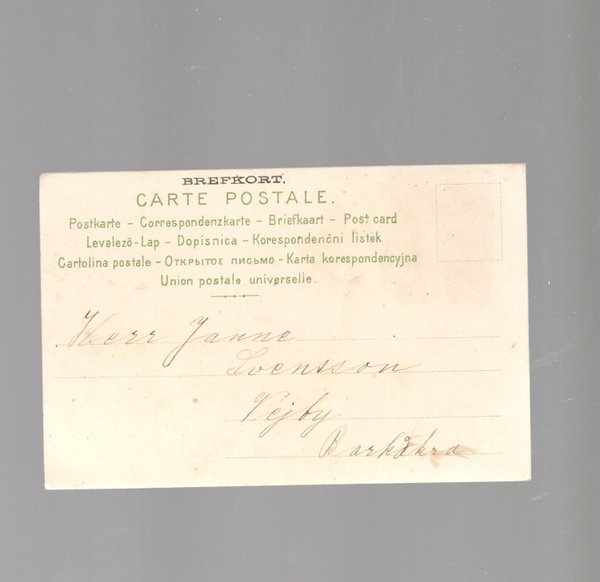 BREFKORT.
CARTE POSTALE.
Postkarte – Correspondenzkarte – Briefkaart – Post card
Levelező-Lap – Dopisnica – Korespondenční listek
Cartolina postale – Открытое письмо – Karta korespondencyjna
Union postale universelle.
Herr Janne
Svensson
Vejby
Barkåkra